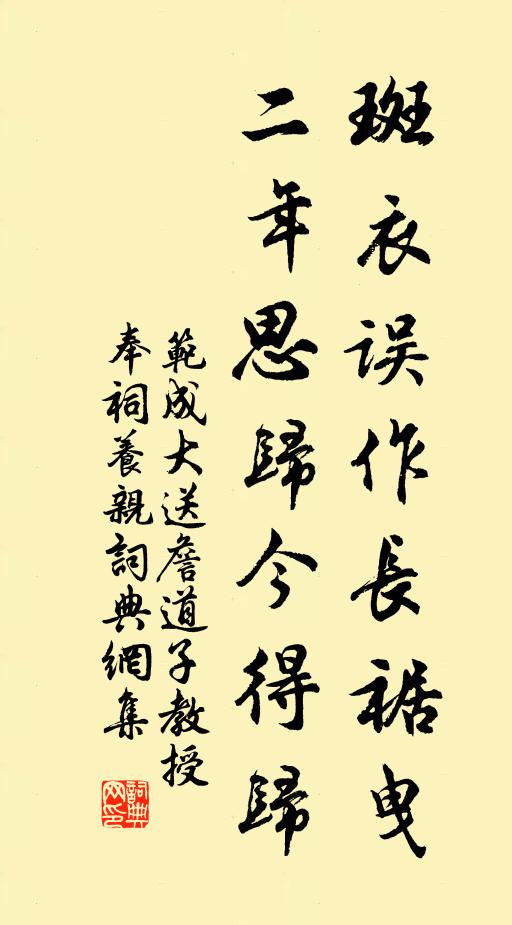 斑衣误作長裾曳
二年思歸今得歸
範成大送詹道子教授
奉祠養親詞典網集
詞典网印